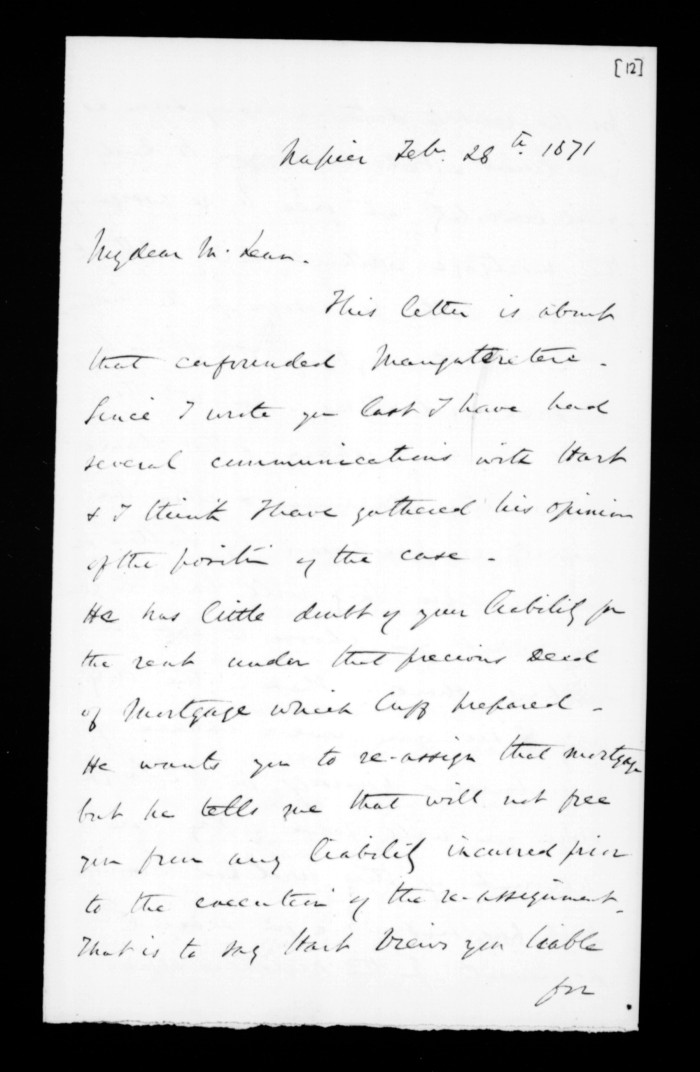 [12]
Napier Feb. 28th 1871
My dear McLean.
This letter is about
that confounded Mangateretere.
Since I wrote you last I have had
several communications with Hart
& I think I have gathered his opinion
of the position of the case.
He has little doubt of your liability for
the rent under that precious Deed
of Mortgage which Cuff prepared.
He wants you to re-assign that mortgage
but he tells me that will not free
you from any liability incurred prior
to the execution of the re-assignment.
That is to say Hart views you liable
for